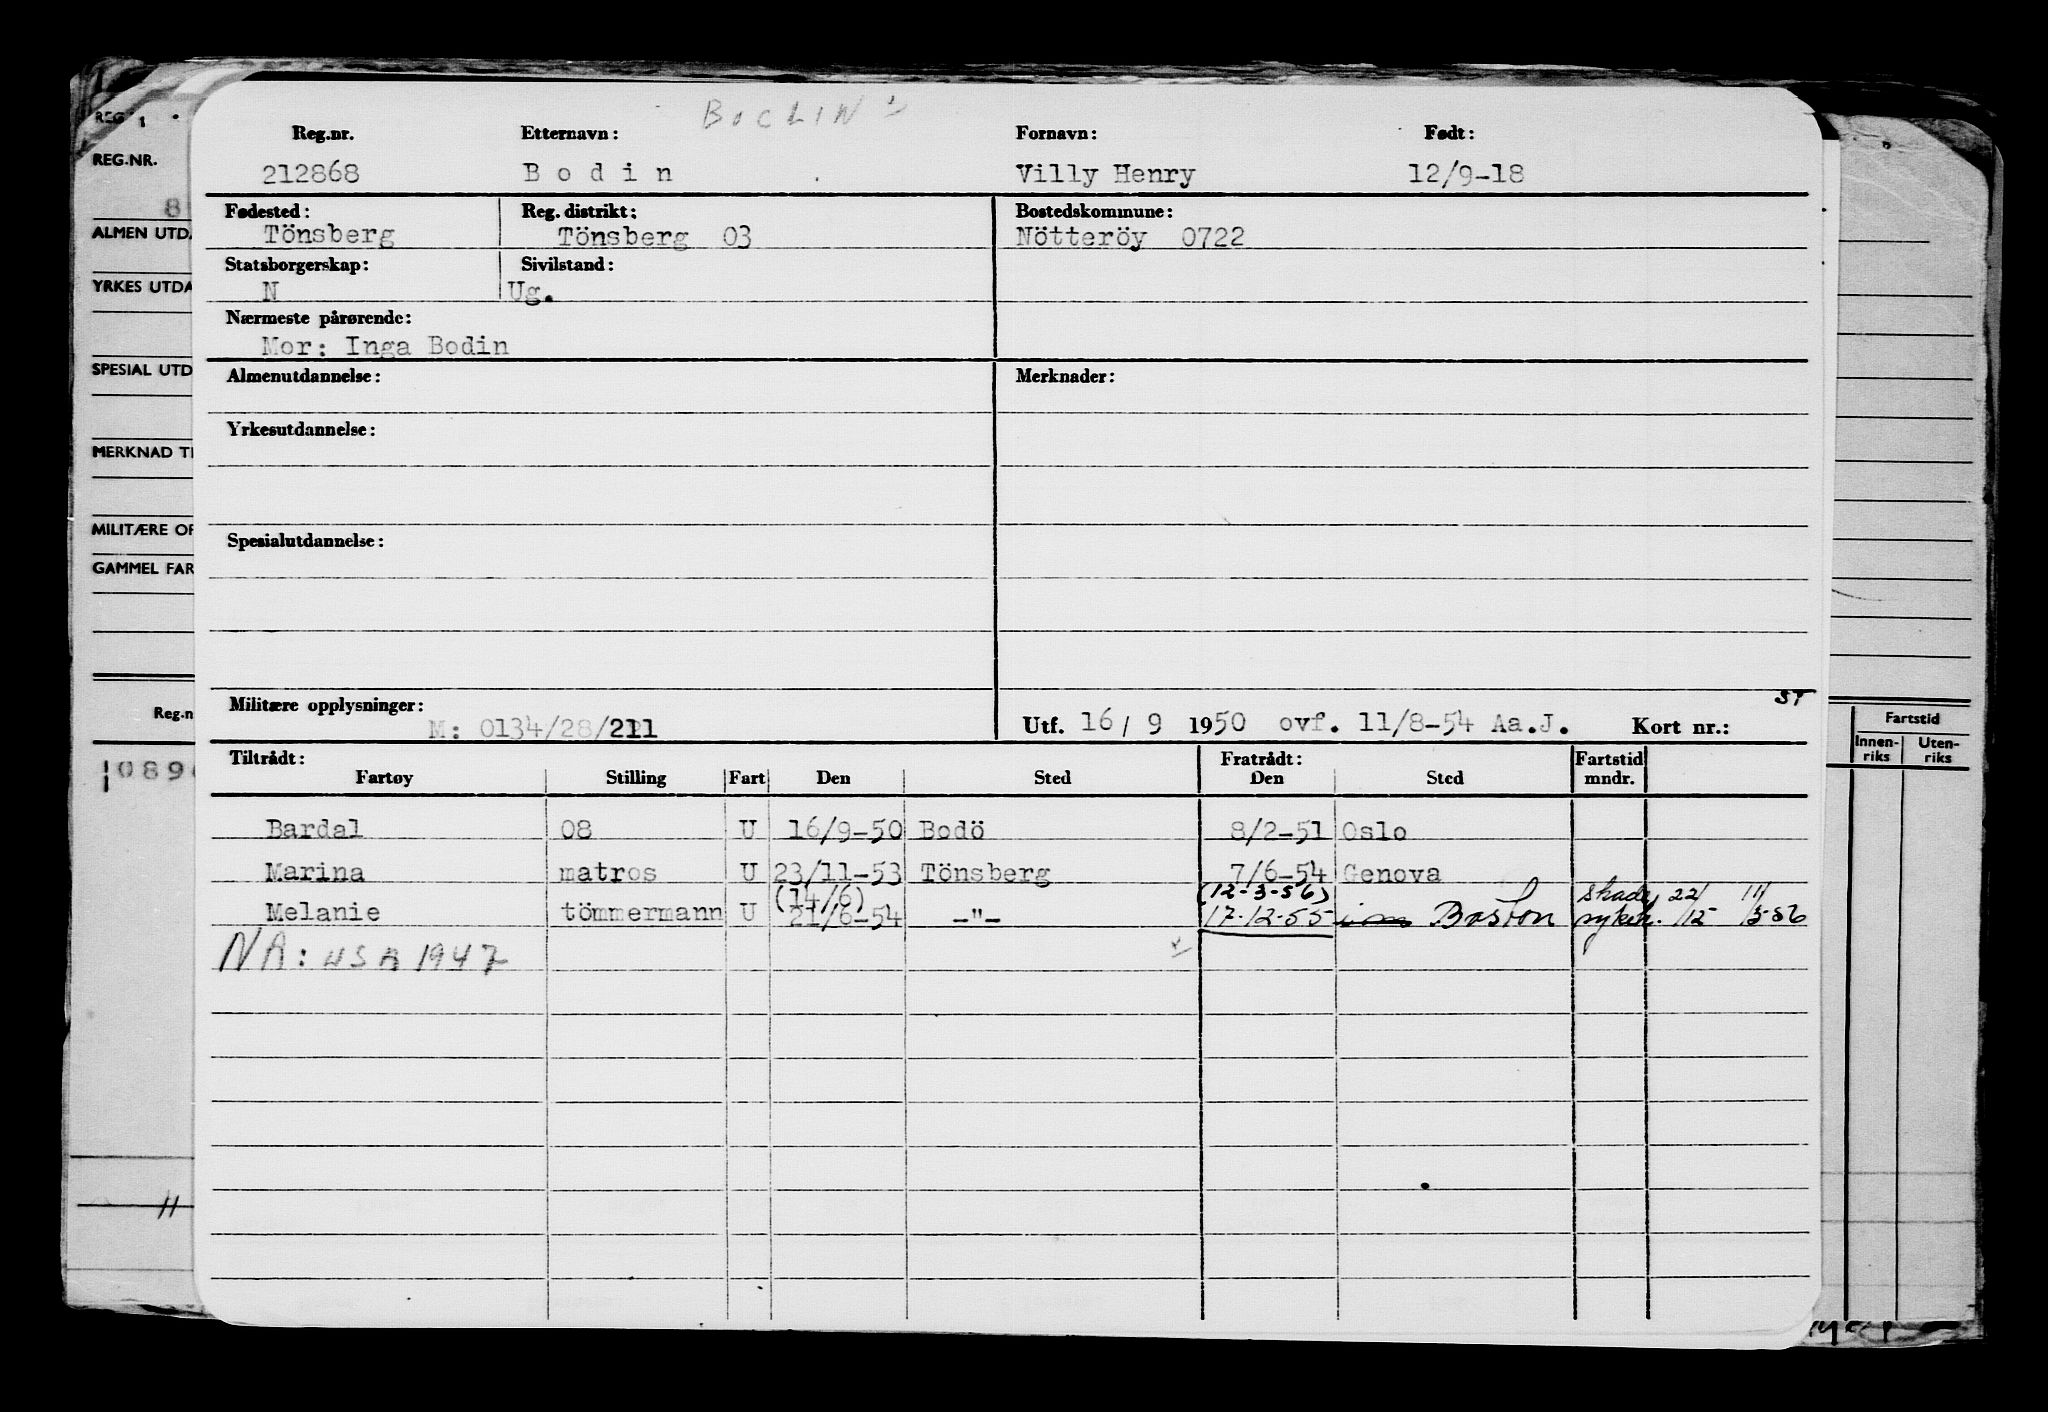 BOCLIN
Reg.nr. Etternavn: Fornavn: Født:
212868 Bodin Villy Henry 12/9-18
Fødested: Reg. distrikt: Bostedskommune:
Tönsberg Tönsberg 03 Nötteröy 0722
Statsborgerskap: Sivilstand:
N Ug.
Nærmeste pårørende:
Mor: Inga Bodin
Almenutdannelse: Merknader:
Yrkesutdannelse:
Spesialutdannelse:
ST
Militære opplysninger:
M: 0134/28/211 Utf. 16/9 1950 ovf. 11/8-54 Aa.J. Kort nr.:
Tiltrådt: Fratrådt: Fartstid
Fartøy Stilling Fart Den Sted Den Sted mndr.
Bardal 08 U 16/9-50 Bodö 8/2-51 Oslo
Marina matros U 23/11-53 Tönsberg 7/6-54 Genova
(14/6) (12-3-56) skade 22/ 11/
Melanie tömmermann U 21/6-54 -"- 17-12-55 Boston sykeh. 12 3-56
NA: USA 1947
REG.NR.
8
ALMEN UTDA
YRKES UTDA
SPESIAL UTD
MERKNAD TI
MILITÆRE OP
GAMMEL FAR
Reg.n
0890
11
Fartstid
Innen-riks Uten-riks